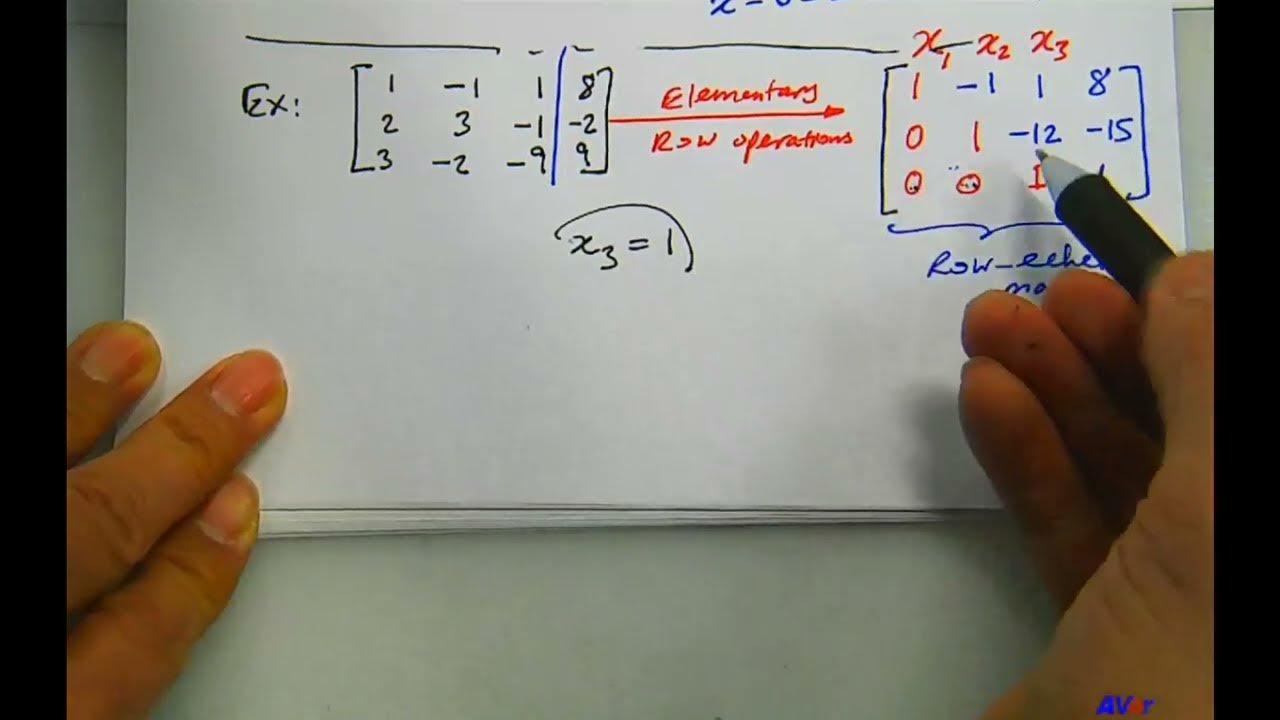 x = 0
Ex: 1 -1 1 8
2 3 -1 -2
3 -2 -9 9
Elementary
Row operations
x1 x2 x3
1 -1 1 8
0 1 -12 -15
0 0 1
x3 = 1
Row-
AVer